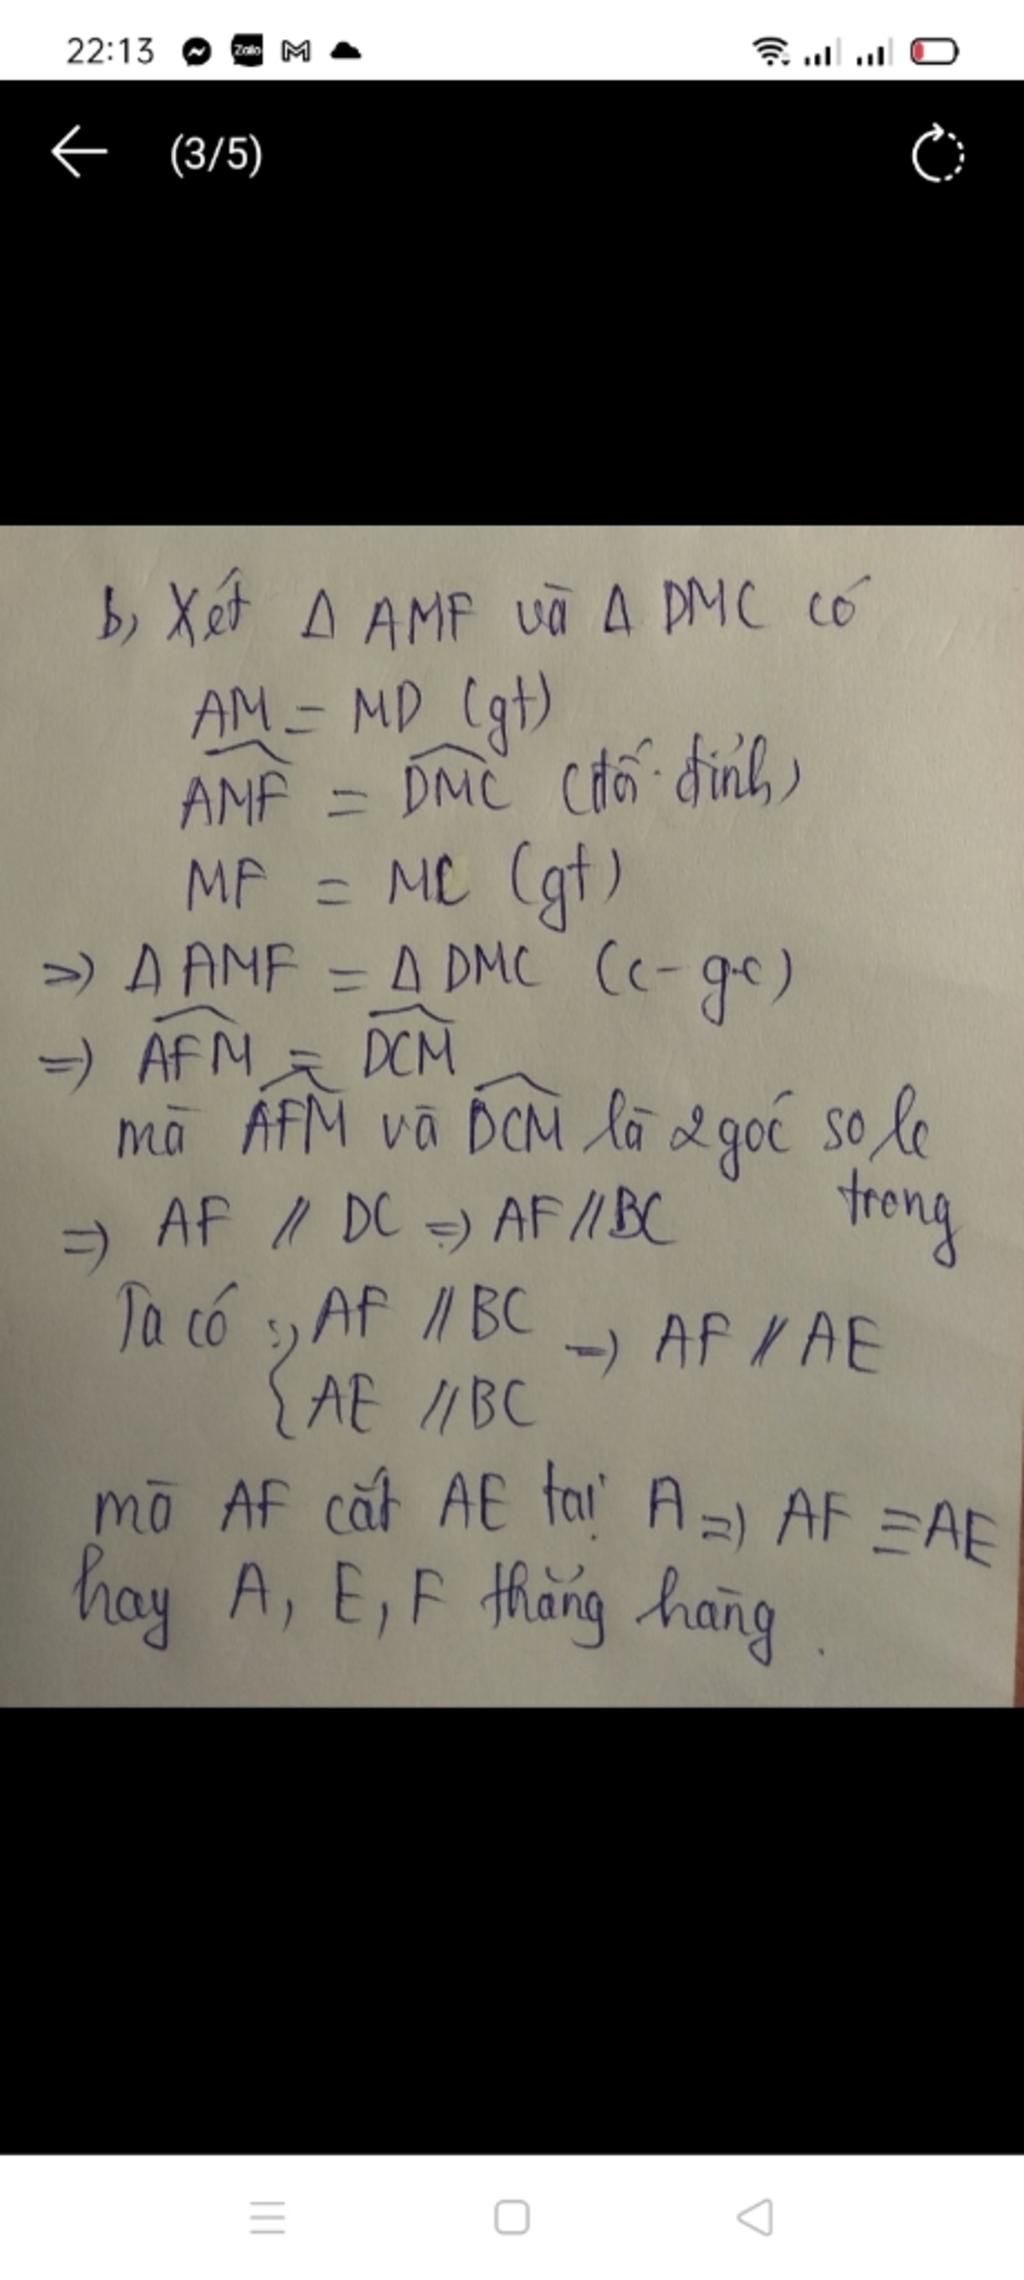 22:13 Zalo
(3/5)
b, Xét Δ AMF và Δ DMC có
AM = MD (gt)
\widehat{AMF} = \widehat{DMC} (đối đỉnh)
MF = MC (gt)
=) Δ AMF = Δ DMC (c-g-c)
=) \widehat{AFM} = \widehat{DCM}
mà \widehat{AFM} và \widehat{DCM} là 2 góc so le
trong
=) AF // DC =) AF // BC
Ta có : AF // BC =) AF // AE
{ AE // BC
mà AF cắt AE tại A =) AF ≡ AE
hay A, E, F thẳng hàng.